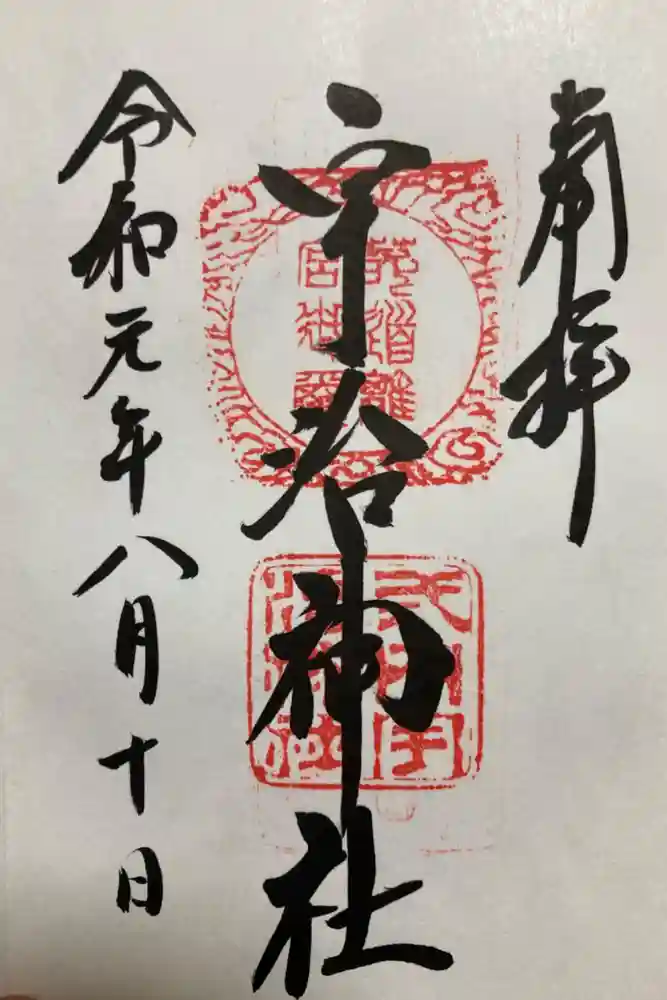 奉拝
宇治神社
令和元年八月十日